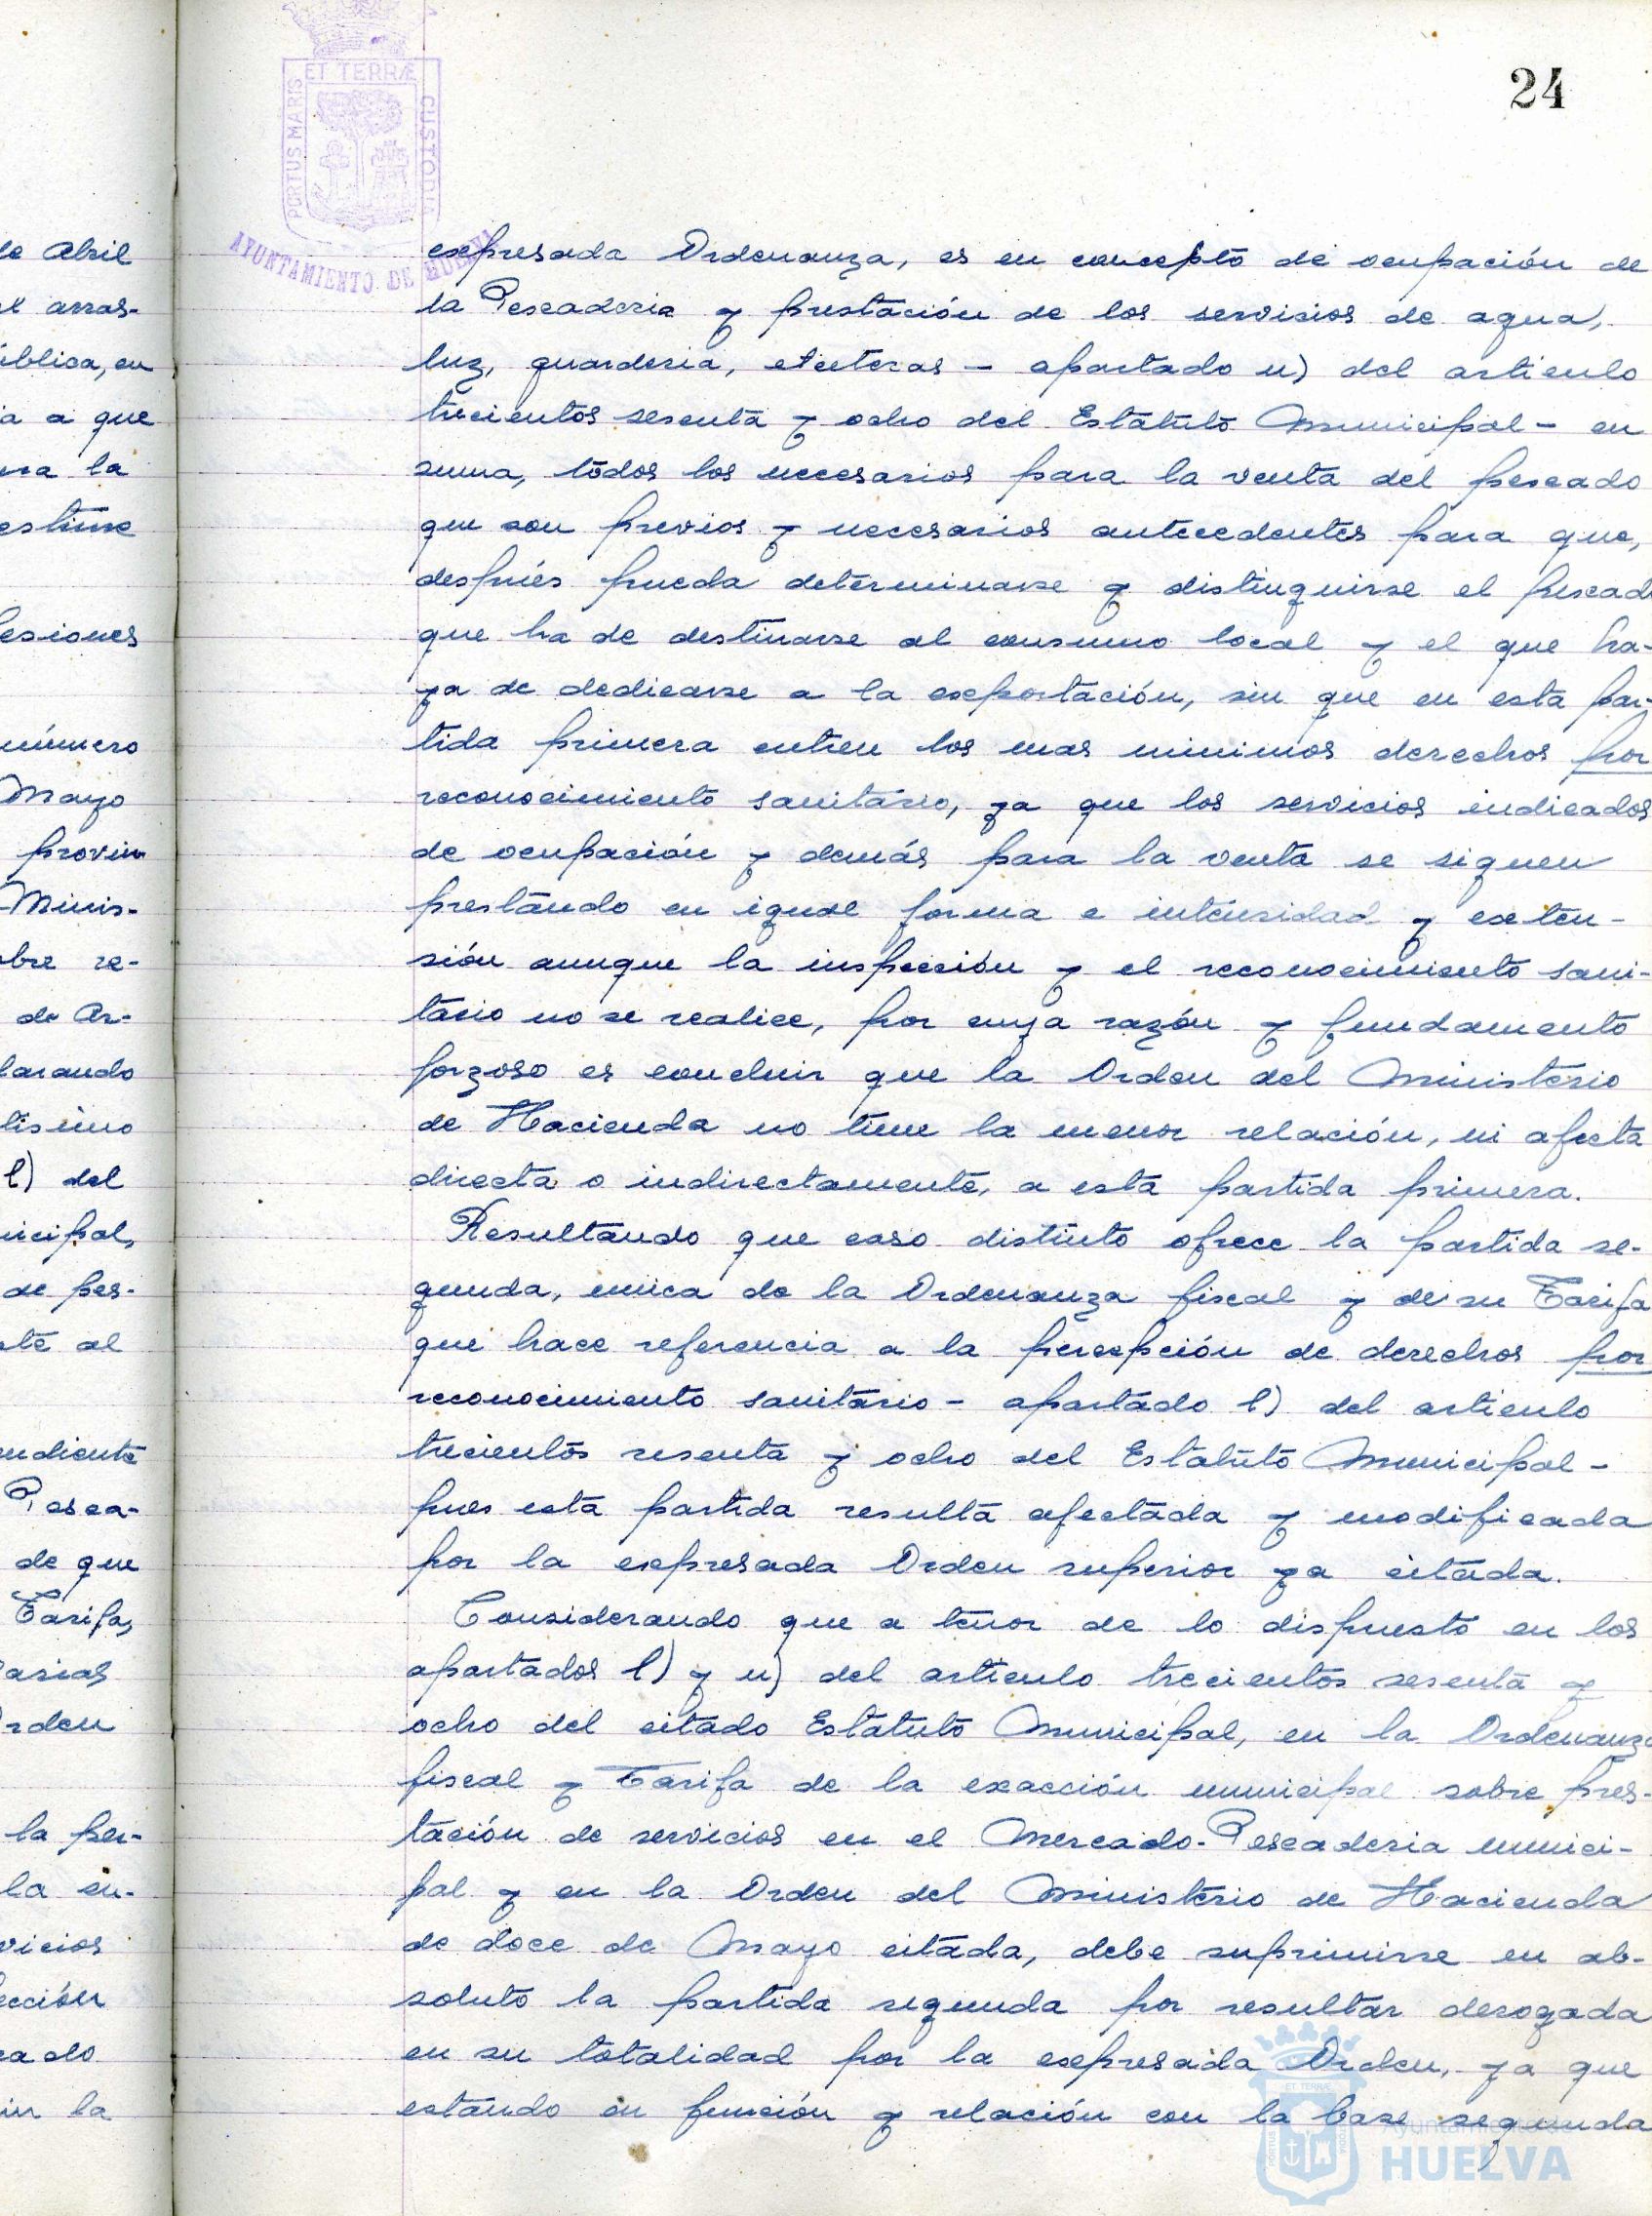 24
ET TERRÆ
PORTUS MARIS
CUSTODIA
AYUNTAMIENTO DE HUELVA
de Abril
arras-
ública, en
a a que
la
estime
esiones
número
Mayo
provin
Minis-
bre re-
de Ar-
larando
lisimo
l) del
nicipal,
de pes-
ste al
endiente
Pesca-
de que
Tarifa,
arias
rden
la per-
la in-
vicios
ección
cado
in la
expresada Ordenanza, es en concepto de ocupación de
la Pescaderia y prestación de los servicios de agua,
luz, guarderia, etceteras - apartado u) del articulo
trecientos sesenta y ocho del Estatuto Municipal - en
suma, todos los necesarios para la venta del pescado
que son previos y necesarios antecedentes para que,
después pueda determinarse y distinguirse el pescad
que ha de destinarse al consumo local y el que ha-
ya de dedicarse a la exportación, sin que en esta par-
tida primera entren los mas minimos derechos por
reconocimiento sanitario, ya que los servicios indicados
de ocupación y demás para la venta se siguen
prestando en igual forma e intensidad y exten-
sión aunque la inspección y el reconocimiento sani-
tario no se realice, por cuya razón y fundamento
forzoso es concluir que la Orden del Ministerio
de Hacienda no tiene la menor relación, ni afecta
directa o indirectamente, a esta partida primera.
Resultando que caso distinto ofrece la partida se-
gunda, unica de la Ordenanza fiscal y de su Tarifa
que hace referencia a la percepción de derechos por
reconocimiento sanitario - apartado l) del articulo
trecientos sesenta y ocho del Estatuto Municipal -
pues esta partida resulta afectada y modificada
por la expresada Orden superior ya citada.
Considerando que a tenor de lo dispuesto en los
apartados l) y u) del articulo trecientos sesenta y
ocho del citado Estatuto Municipal, en la Ordenanza
fiscal y Tarifa de la exacción municipal sobre pres-
tación de servicios en el Mercado-Pescaderia munici-
pal y en la Orden del Ministerio de Hacienda
de doce de Mayo citada, debe suprimirse en ab-
soluto la partida segunda por resultar derogada
en su totalidad por la expresada Orden, ya que
estando en función y relación con la base segunda
Ayuntamiento de
HUELVA